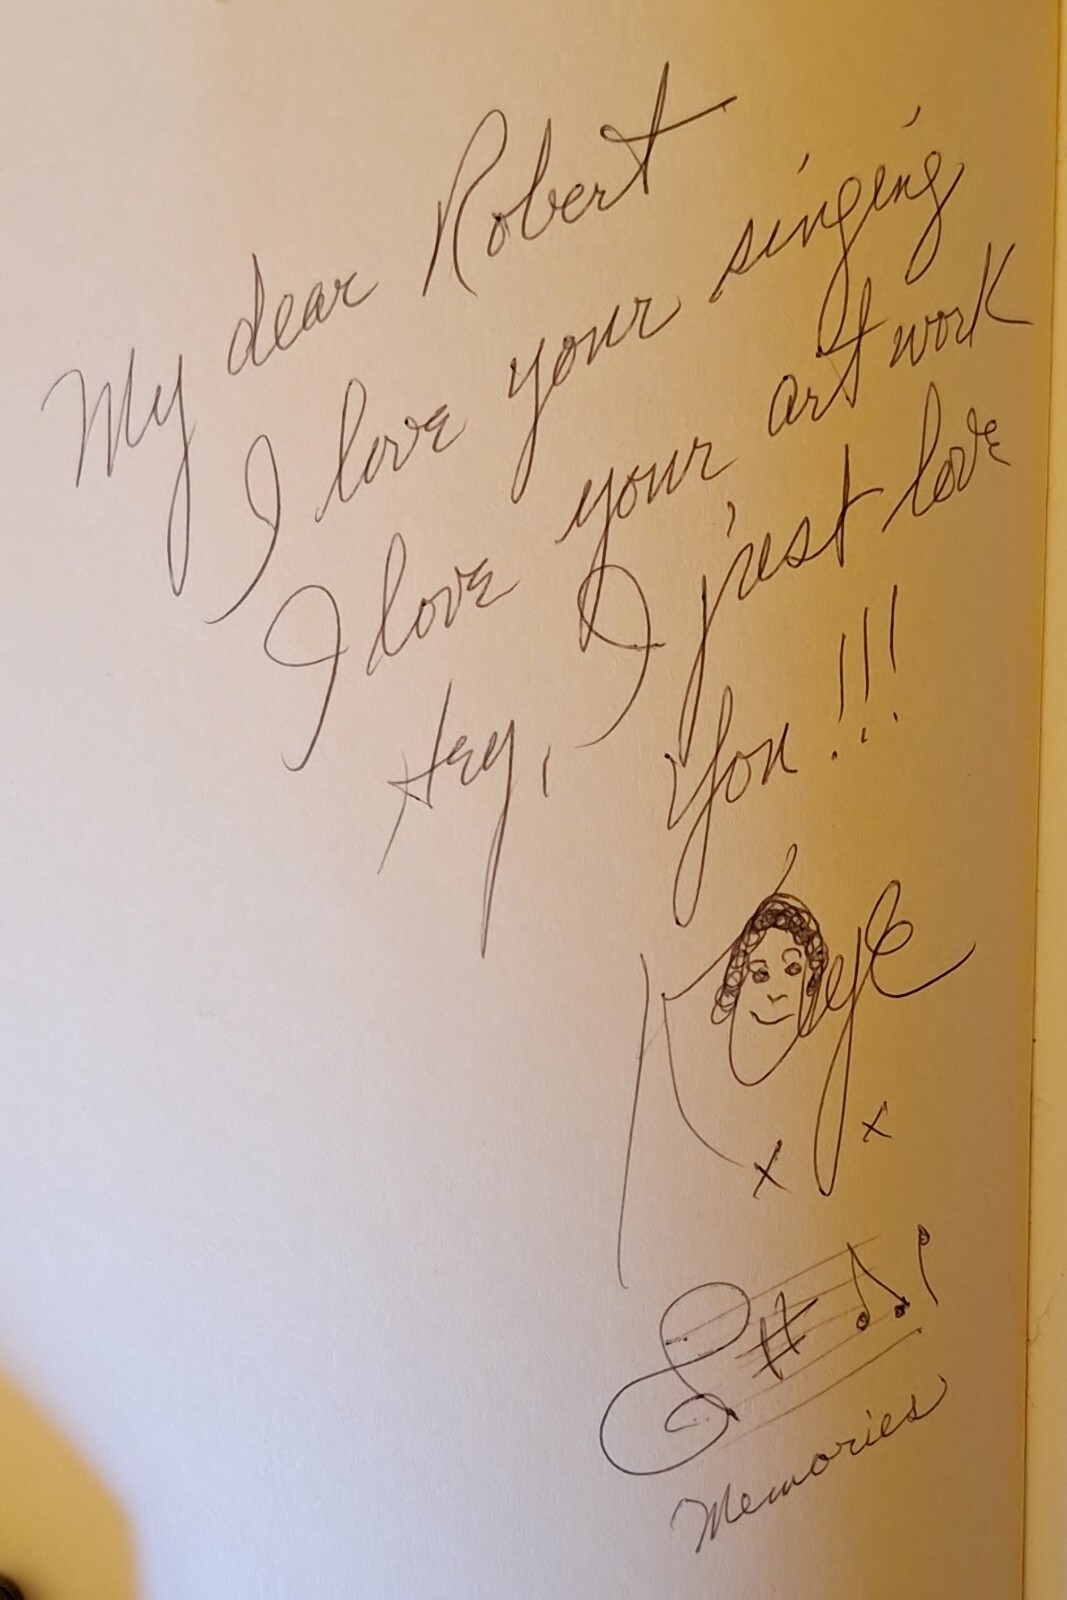 My dear Robert
I love your singing
I love your art work
Hey, I just love
You!!!
Kaye
x x
Memories